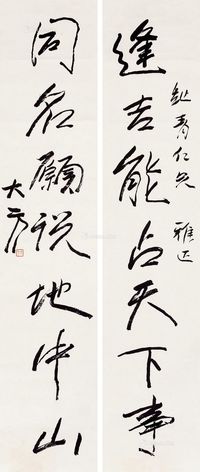 逢吉能占天下事
青仁兄 雅正
同名願说地中山
大方